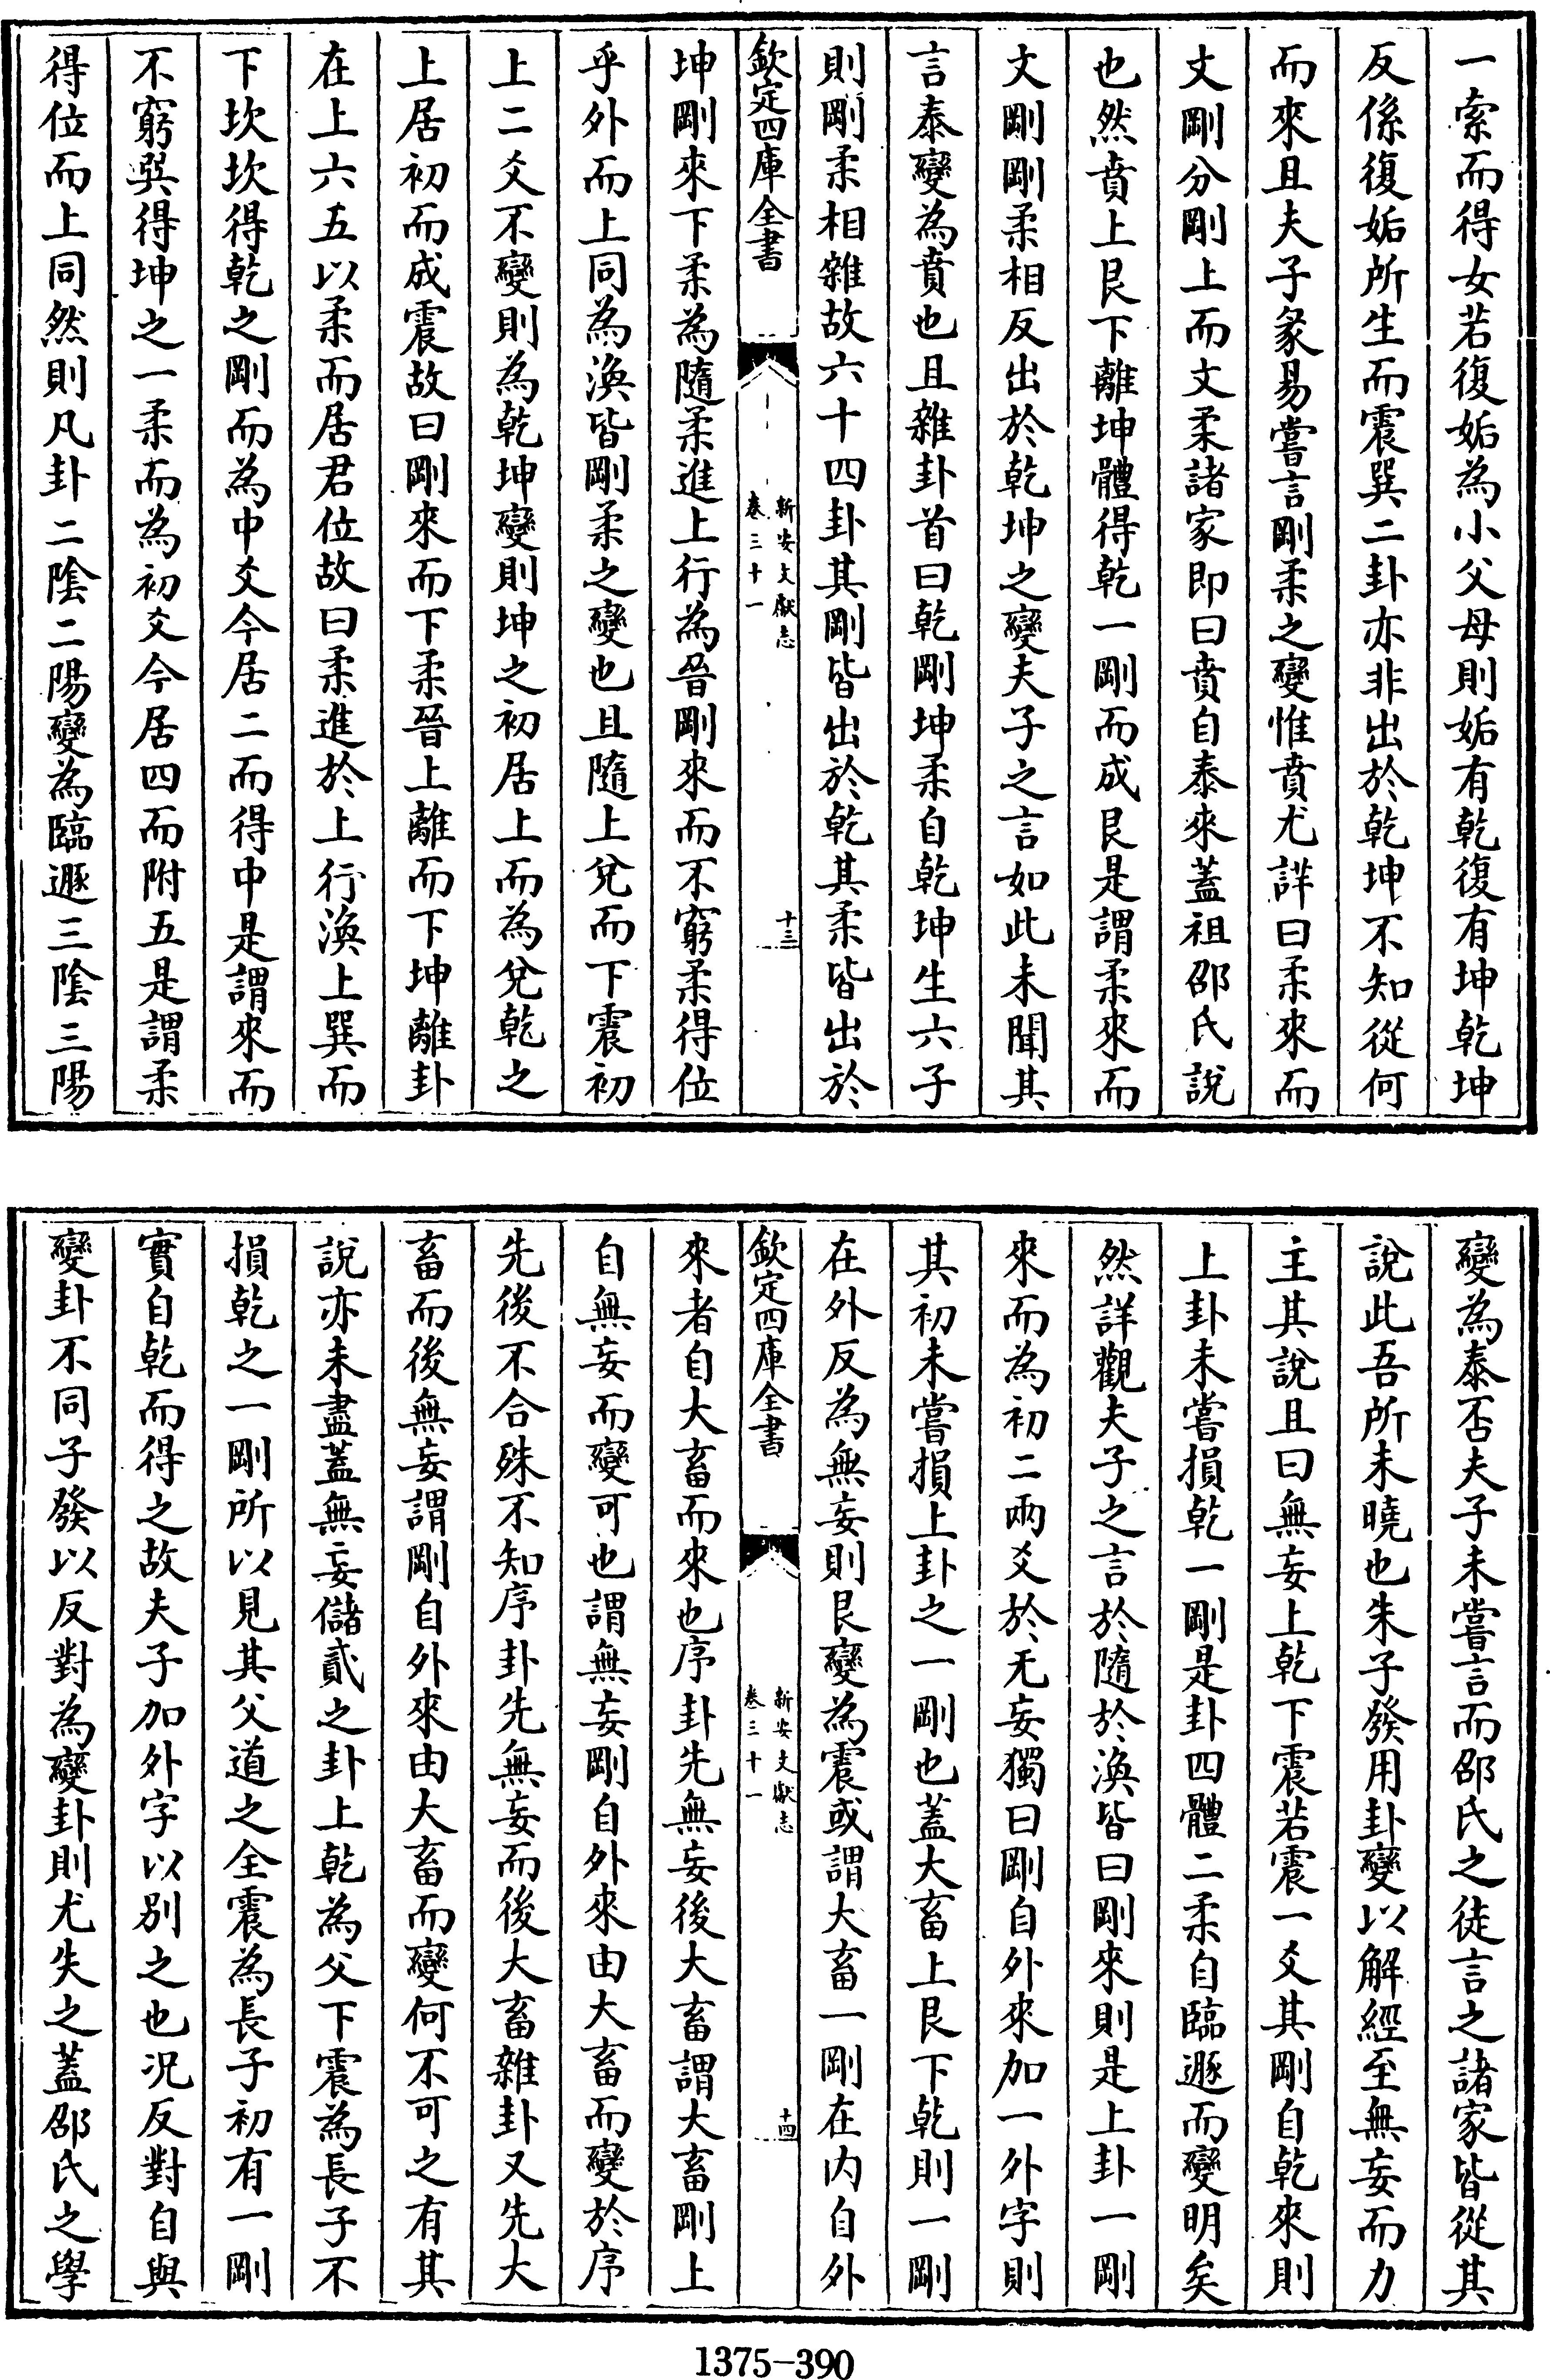 一索而得女若復姤為小父母則姤有乾復有坤乾坤
反係復姤所生而震巽二卦亦非出於乾坤不知從何
而來且夫子彖易嘗言剛柔之變惟賁尤詳曰柔來而
文剛分剛上而文柔諸家即曰賁自泰來蓋祖邵氏說
也然賁上艮下離坤體得乾一剛而成艮是謂柔來而
文剛剛柔相反出於乾坤之變夫子之言如此未聞其
言泰變為賁也且雜卦首曰乾剛坤柔自乾坤生六子
則剛柔相雜故六十四卦其剛皆出於乾其柔皆出於
欽定四庫全書
新安文獻志
卷三十一
十三
坤剛來下柔為隨柔進上行為晉剛來而不窮柔得位
乎外而上同為渙皆剛柔之變也且隨上兌而下震初
上二爻不變則為乾坤變則坤之初居上而為兌乾之
上居初而成震故曰剛來而下柔晉上離而下坤離卦
在上六五以柔而居君位故曰柔進於上行渙上巽而
下坎坎得乾之剛而為中爻今居二而得中是謂來而
不窮巽得坤之一柔而為初爻今居四而附五是謂柔
得位而上同然則凡卦二陰二陽變為臨遯三陰三陽
變為泰否夫子未嘗言而邵氏之徒言之諸家皆從其
說此吾所未曉也朱子發用卦變以解經至無妄而力
主其說且曰無妄上乾下震若震一爻其剛自乾來則
上卦未嘗損乾一剛是卦四體二柔自臨遯而變明矣
然詳觀夫子之言於隨於渙皆曰剛來則是上卦一剛
來而為初二兩爻於无妄獨曰剛自外來加一外字則
其初未嘗損上卦之一剛也蓋大畜上艮下乾則一剛
在外反為無妄則艮變為震或謂大畜一剛在內自外
欽定四庫全書
新安文獻志
卷三十一
十四
來者自大畜而來也序卦先無妄後大畜謂大畜剛上
自無妄而變可也謂無妄剛自外來由大畜而變於序
先後不合殊不知序卦先無妄而後大畜雜卦又先大
畜而後無妄謂剛自外來由大畜而變何不可之有其
說亦未盡蓋無妄儲貳之卦上乾為父下震為長子不
損乾之一剛所以見其父道之全震為長子初有一剛
實自乾而得之故夫子加外字以別之也况反對自與
變卦不同子發以反對為變卦則尤失之蓋邵氏之學
1375-390